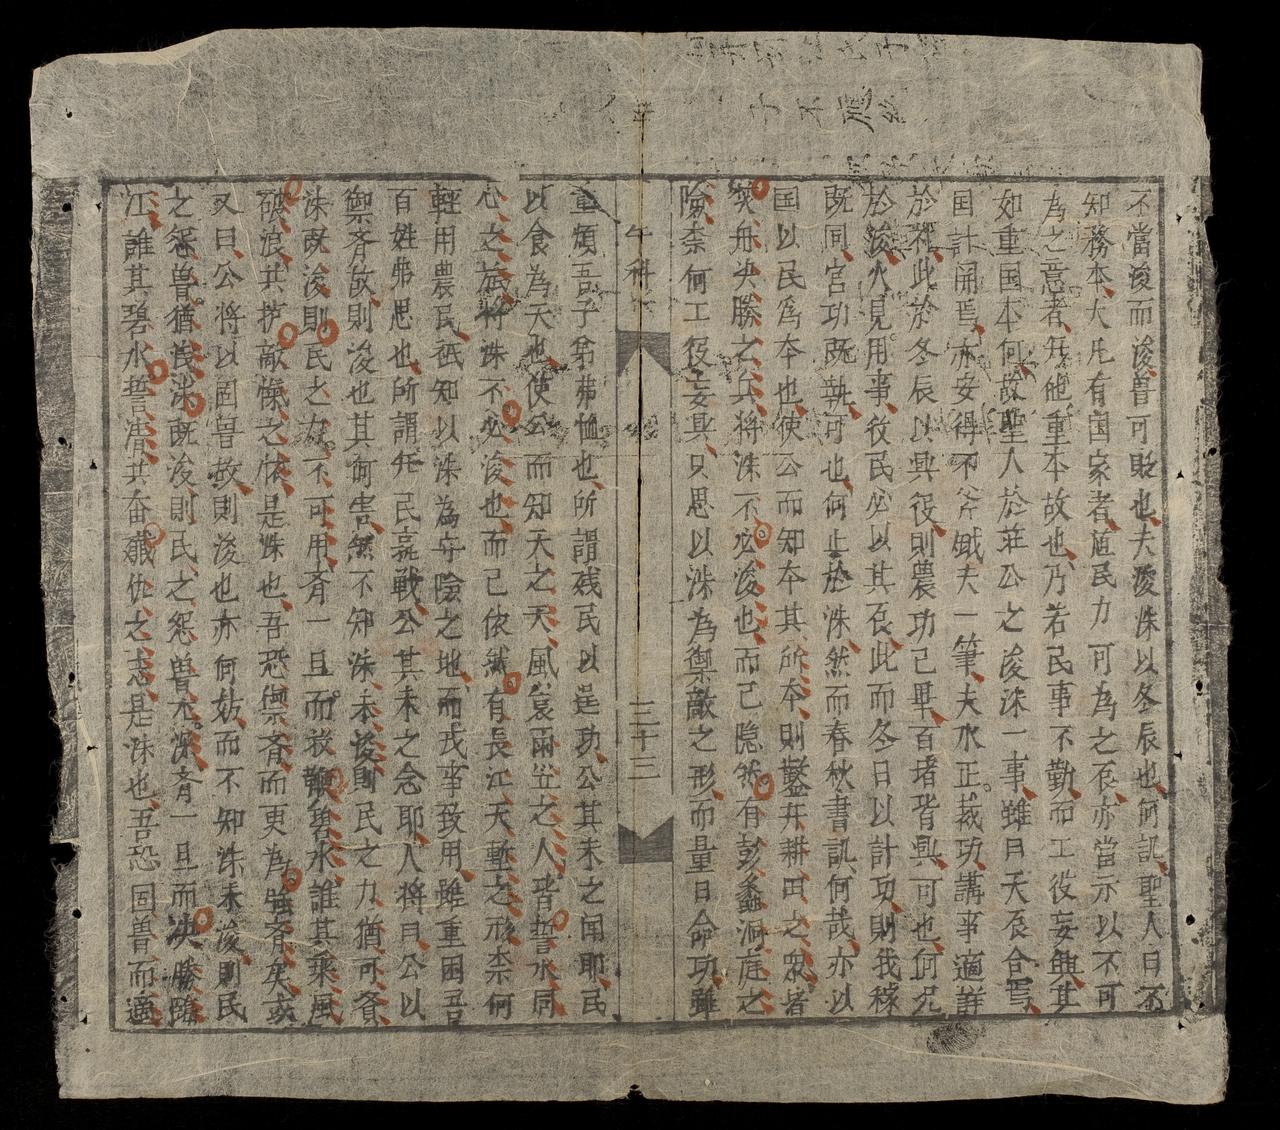 不當浚而浚魯可貶也夫浚洙以冬辰也何訊聖人曰不
知務本大凡有国家者䘏民力可為之辰亦當示以不可
為之意者无他重本故也乃若民事不勤而工役妄興其
如重国本何故聖人於莊公之浚洙一事雖曰天辰合焉
国計閑焉亦安得不斧鉞夫一筆夫水正裁功講事適詳
於利此於冬辰以興役則農功已畢百堵皆興可也何況
於浚人見用事役民必以其辰此而冬日以計功則我稼
既同宮功既執可也何止於洙然而春秋書訊何哉亦以
国以民為本也使公而知本其所本則鑿井耕田之眾者
矣舟決勝之兵将洙不必浚也而已隐然有彭蠡洞庭之
險奈何工役妄具只思以洙為禦敵之形而量日命功雖
午科
三十三
重煩吾子弟弗恤也所謂残民以逞功公其未之聞耶民
以食為天也使公而知天之天風裳雨笠之人皆誓水同
心之旅将洙不必浚也而已依然有長江天塹之形柰何
輕用農民祇知以洙為守險之地而戎事致用雖重困吾
百姓弗思也所謂死民㐮戰公其未之念耶人将曰公以
禦斉故則浚也其何害然不知洙未浚則民之力猶可賚
洙既浚則民之力不可用斉一旦而投鞭碧水誰其乘風
破浪其扵敵愾之依是洙也吾恐禦斉而更為強斉矣或
又曰公将以固魯故則浚也亦何妨而不知洙未浚則民
之怨魯猶浅洙既浚則民之怨魯尤深斉一旦而決勝臨
江誰其碧水誓清共奮殲仇之志是洙也吾恐固魯而適